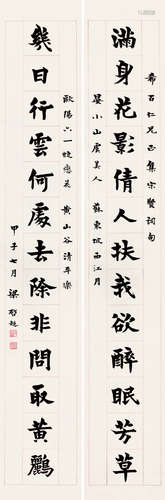 希哲仁兄正集宋賢詞句
滿身花影倩人扶我欲醉眠芳草
晏小山虞美人 蘇東坡西江月
幾日行雲何處去除非問取黃鸝
歐陽六一蝶戀花 黃山谷清平樂
甲子七月梁啟超